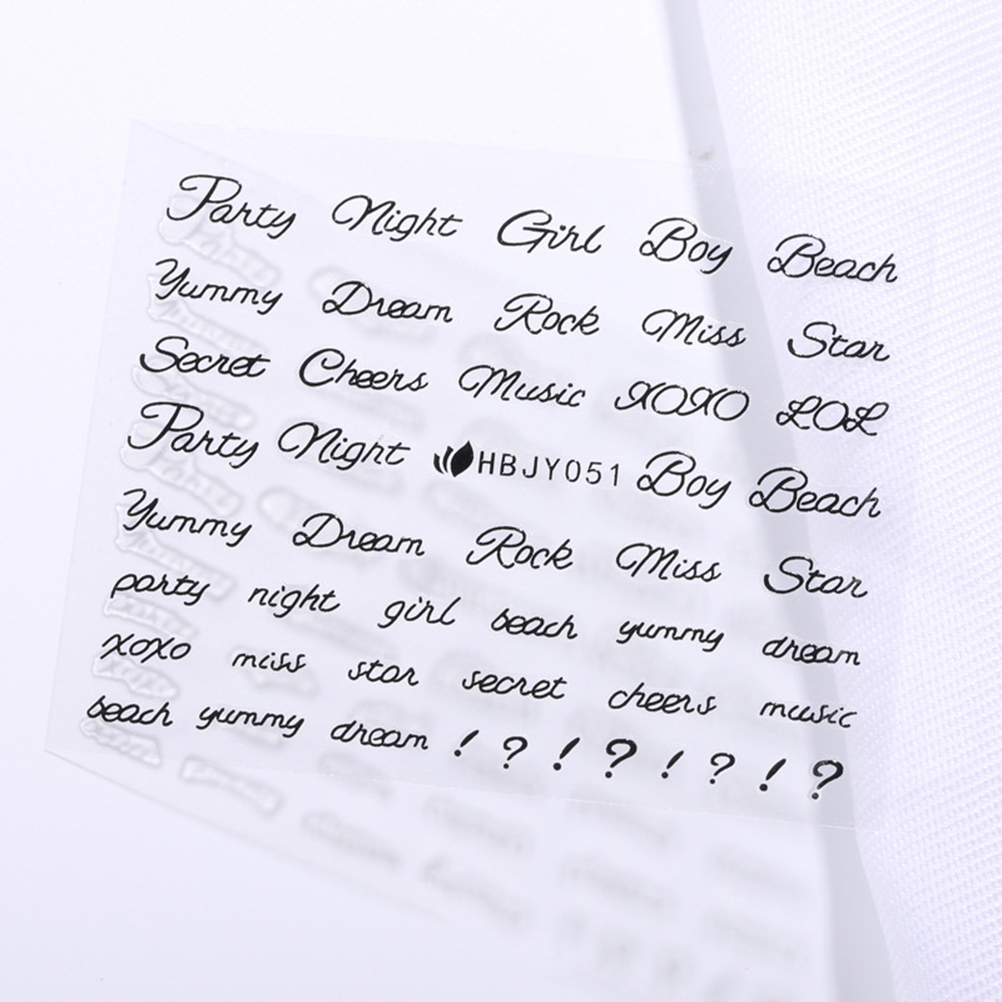 Party Night Girl Boy Beach
Yummy Dream Rock Miss Star
Secret Cheers Music XOXO LOL
Party Night HBJY051 Boy Beach
Yummy Dream Rock Miss Star
party night girl beach yummy dream
xoxo miss star secret cheers music
beach yummy dream ! ? ! ? ! ? ! ?